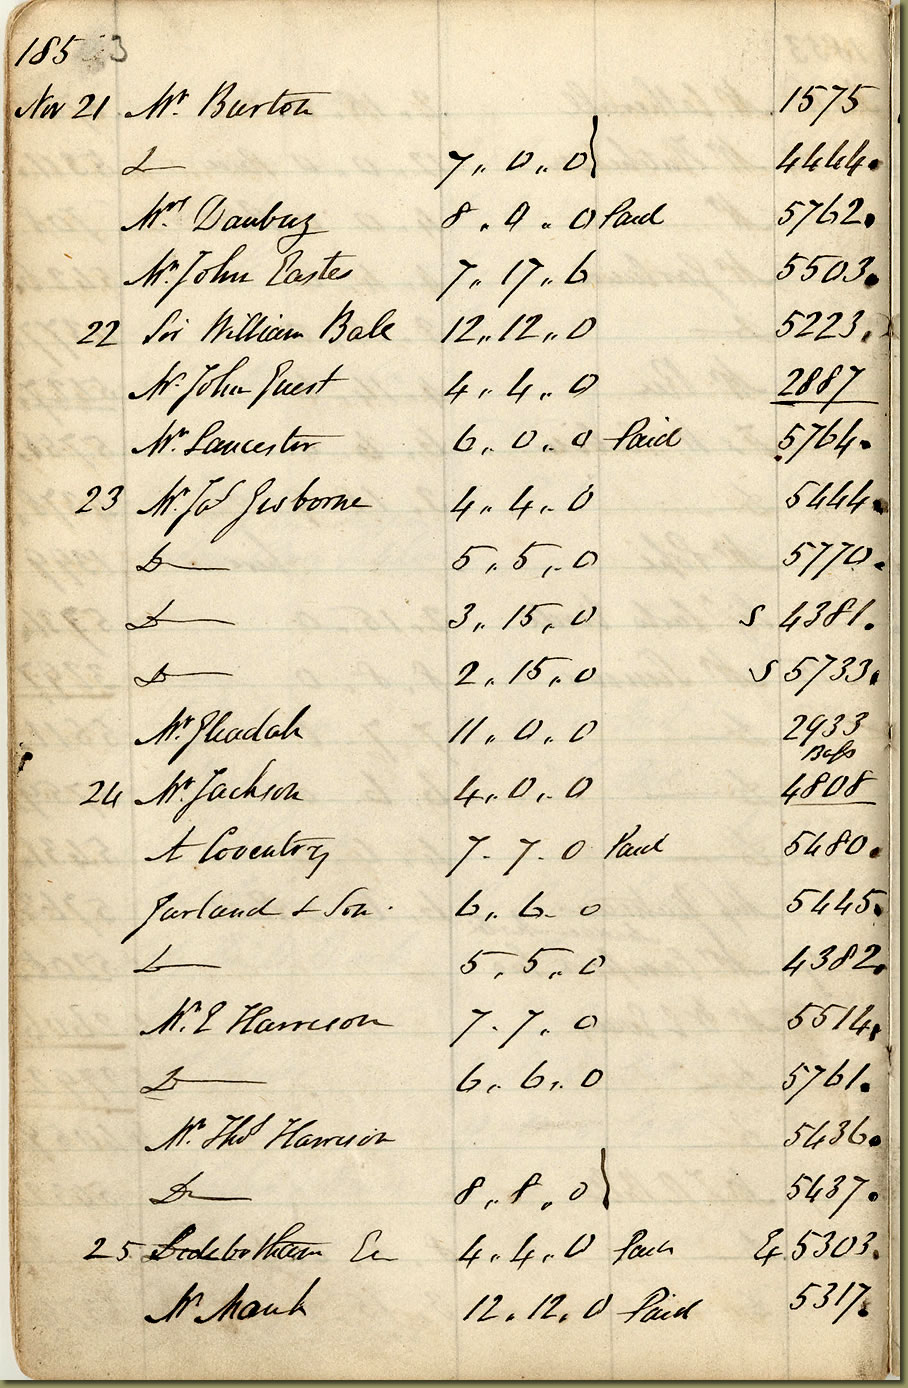 1853
Nov 21 Mr. Burton 1575
Do 7 " 0 " 0 4444.
Mrs. Daubuz 8 " 0 " 0 Paid 5762.
Mr. John Eastes 7 " 17 " 6 5503.
22 Sir William Ball 12 " 12 " 0 5223.
Mr. John Guest 4 " 4 " 0 2887
Mr. Lancester 6 " 0 " 0 Paid 5764.
23 Mr. Jas Gisborne 4 " 4 " 0 5444.
Do 5 " 5 " 0 5770.
Do 3 " 15 " 0 S 4381.
Do 2 " 15 " 0 S 5733.
Mr. Gleadah 11 " 0 " 0 2933
Bass
24 Mr. Jackson 4 " 0 " 0 4808
A Coventry 7 - 7 - 0 Paid 5480.
Garland & Son. 6 " 6 - 0 5445.
Do 5 " 5 " 0 4382.
Mr. E Harrison 7 - 7 " 0 5514.
Do 6 " 6 " 0 5761.
Mr. Thos Harrison 5436.
Do 8 " 8 " 0 5437.
25 4 " 4 " 0 Paid 5303.
Mr 12 " 12 " 0 Paid 5317.